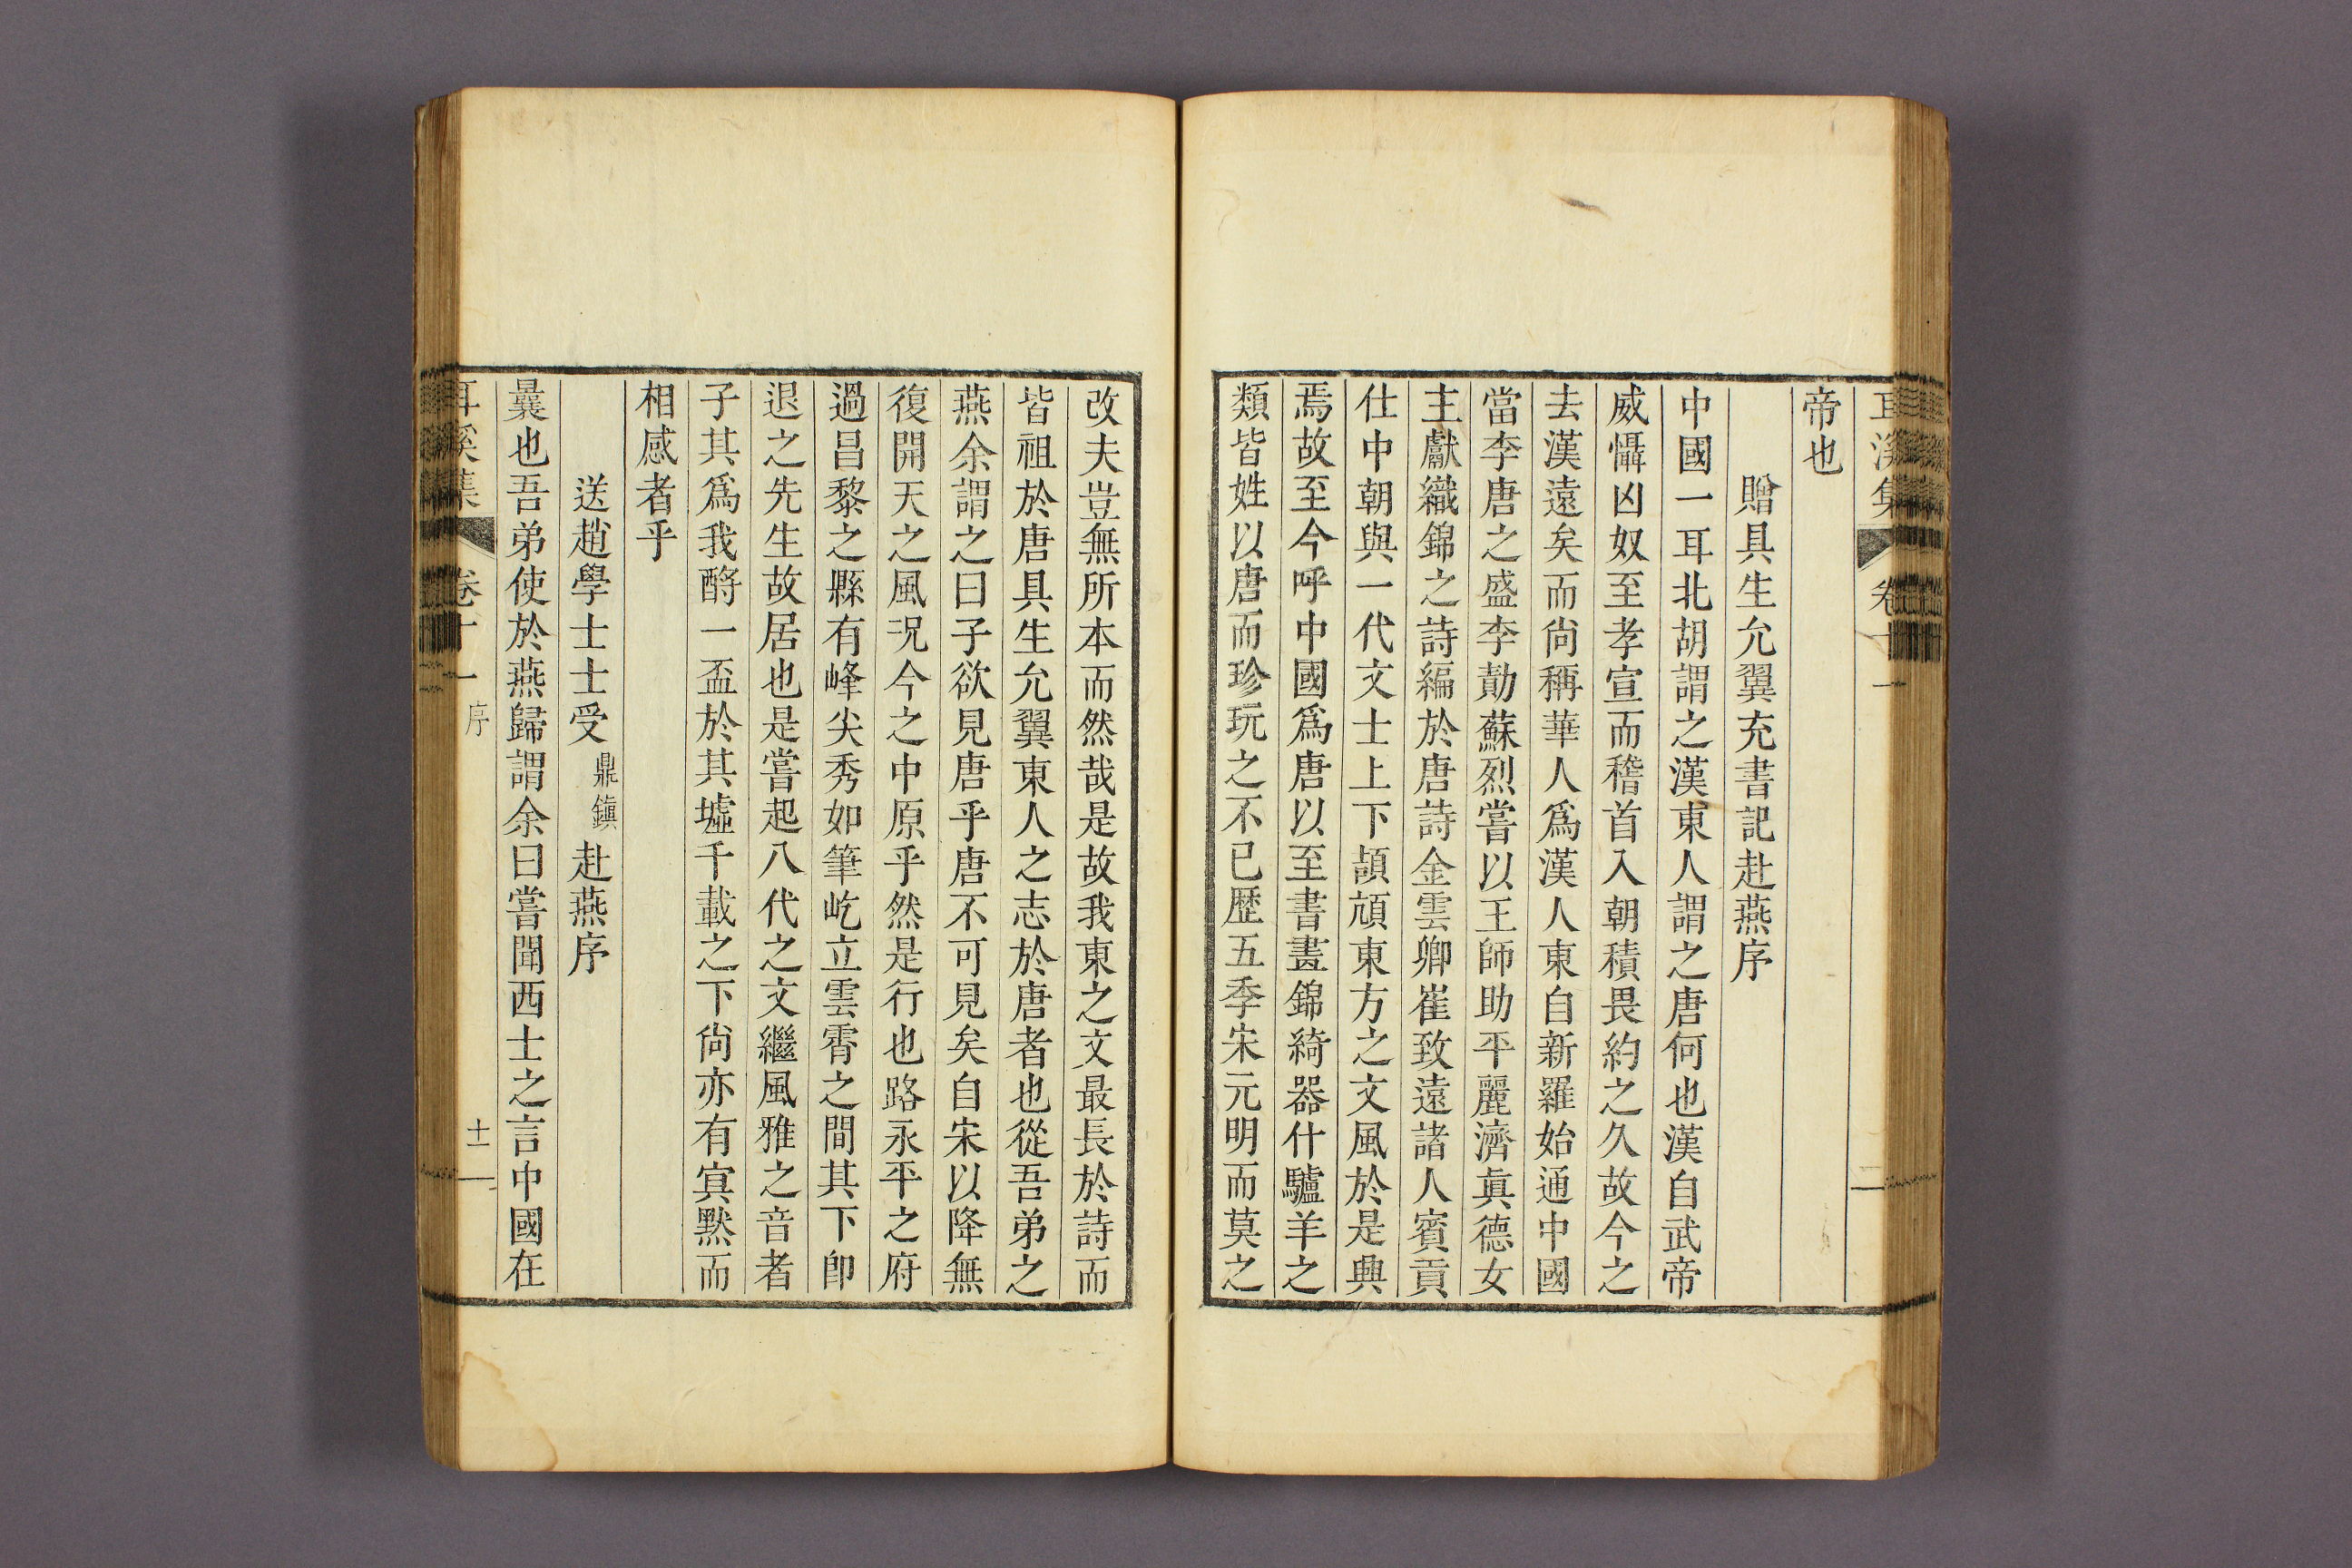 帝也
贈具生允翼充書記赴燕序
中國一耳北胡謂之漢東人謂之唐何也漢自武帝
威懾凶奴至孝宣而稽首入朝積畏約之久故今之
去漢遠矣而尙稱華人爲漢人東自新羅始通中國
當李唐之盛李勣蘇烈嘗以王師助平麗濟眞德女
主獻織錦之詩編於唐詩金雲卿崔致遠諸人賓貢
仕中朝與一代文士上下頡頏東方之文風於是興
焉故至今呼中國爲唐以至書畫錦綺器什驢羊之
類皆姓以唐而珍玩之不已歷五季宋元明而莫之
改夫豈無所本而然哉是故我東之文最長於詩而
皆祖於唐具生允翼東人之志於唐者也從吾弟之
燕余謂之曰子欲見唐乎唐不可見矣自宋以降無
復開天之風况今之中原乎然是行也路永平之府
過昌黎之縣有峰尖秀如筆屹立雲霄之間其下卽
退之先生故居也是嘗起八代之文繼風雅之音者
子其爲我酹一盃於其墟千載之下尙亦有寘黙而
相感者乎
送趙學士士受鼎鎭赴燕序
曩也吾弟使於燕歸謂余曰嘗聞西士之言中國在
耳溪集 卷十一 序 十一